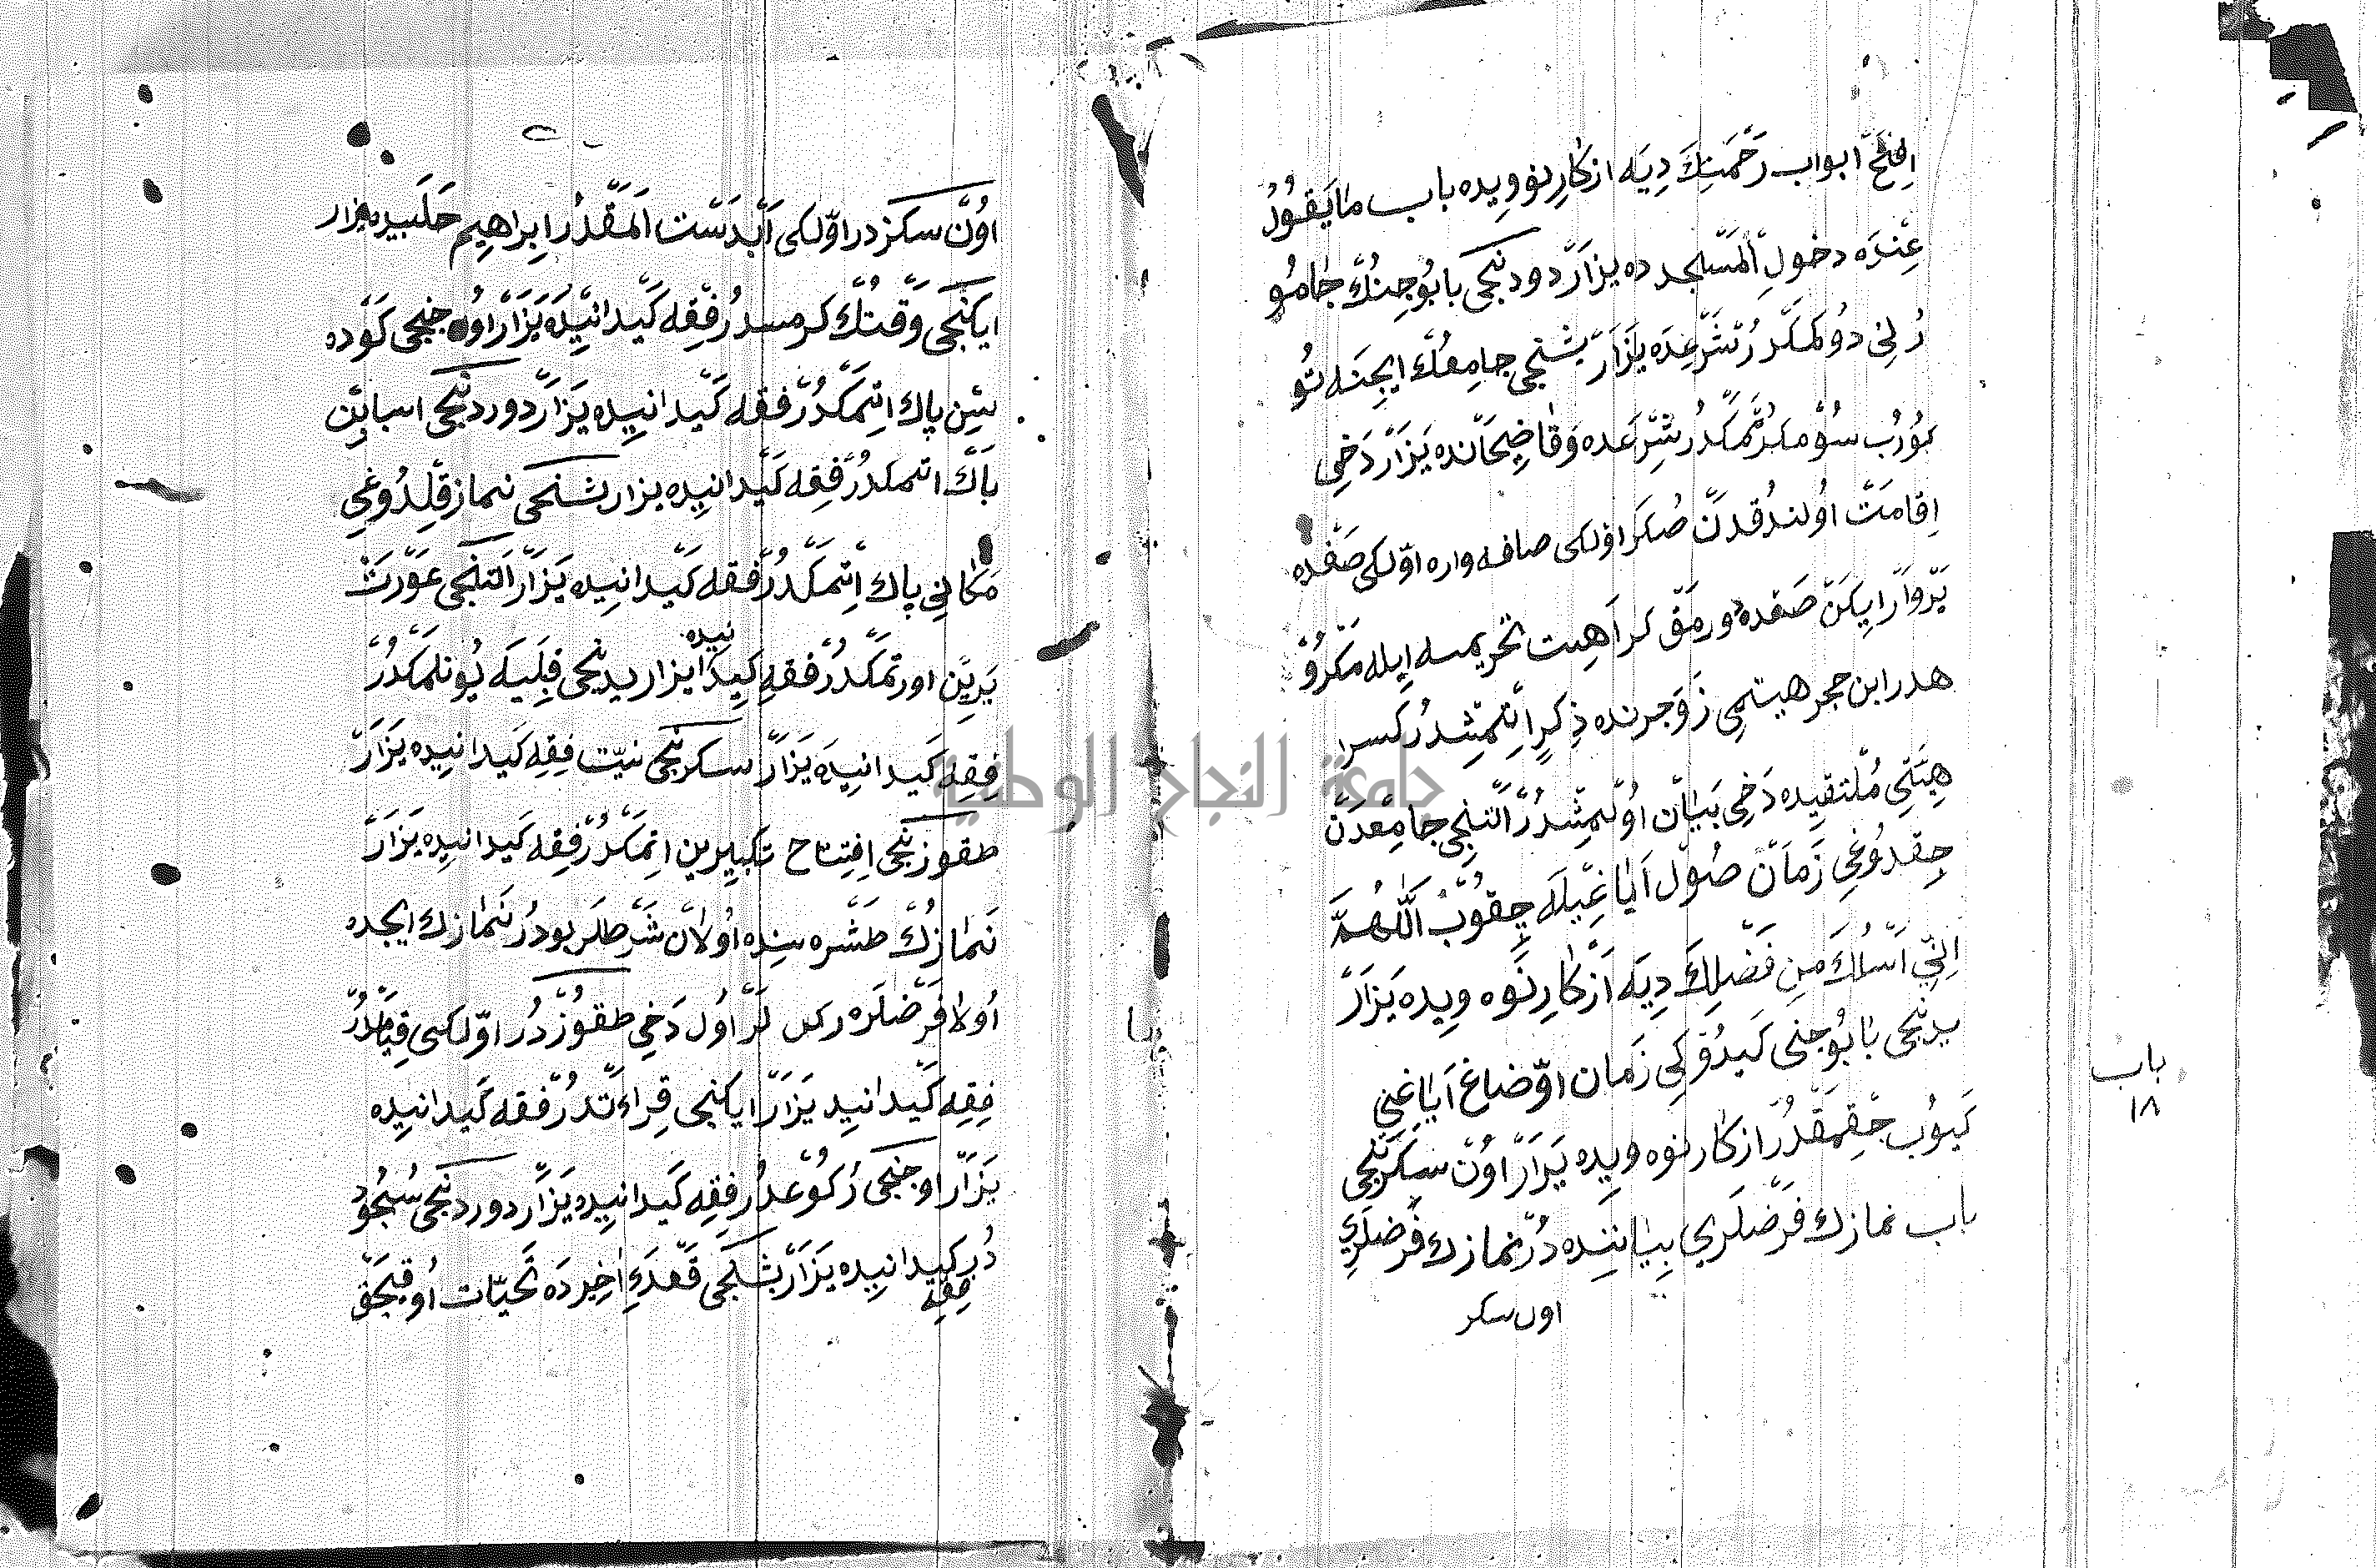 اِفْتَحْ ابواب رَحْمَتِكَ دِيَه ازكارِنوويده باب مَا يَقُولُ
عِنْدَه دخولِ اَلْمَسْجِد ده يزارَّ دوردنجى بابُوجِنُكْ جَامُو
رُنِى دُوكمكدُر شَرْعِدَه يَزَارْ بشنجى جامِعُكْ ايجِنَه تُو
كورُب سُومكرمكدُر شِرْعَده وَقَاضِيخَانده يَزَارْ دَخِى
اِقامَتْ اوُلندُقدنْ صُكرَ اوّلكى صافه واره اوّلكى صَفْده
يَرْ وَارْ ايكَنْ صَفده دورمَقْ كراَهِت تحريمه اِيله مَكْرُو
هدر ابن حجر هيتمِى زَوَجرنده ذِكرِ اتِمِّشِدُر كسرا
هِيَتِى مُلْتقِيده دَخِى بَيَانْ اوُلمِشِدُرْ اَلتنجِى جامِعْدَنْ
جِقدُوغِى زَمَانْ صُولْ اَيَاغِيلَه جِقوُبْ اَللّٰهُمَّ
اِنِّى اَسْلُكَ مِن فَضْلِكَ دِيَه اَزْكارِنَوَه ويده يَزَارْ
يدنجى بابُوجنى كَيدُوكِى زَمان اوّ صَاغ اَيَاغِنِى
كَيوُب جِقمَقدُرْ ازكار نوه ويِده يَزَارْ اوُنْ سكزنجى
باب نمازك فَرْضلَرِى بِيَانِنِده دُرْ نمازك فَرْضلَرِى
اون سكز
باب
١٨
اوُنْ سكزدر اوّلكى اَبْدَسْت اَلمَقْدُر اِبراهِيم حَلَبِيده يزار
ايكنجى وَقتُكْ كرمسدُر فِقِه كَيدانِيِده يَزَارْ اوُجنجى كَوْده
سِنِن پاك اتِمَكْدُرْ فقه كَيدانِيِده يَزَارْ دوردنجى اسبابِنْ
پَاكْ اتمكدُرْ فِقه كَيدانِيده يزار بشنجى نماز قِلِدُوغِى
مَكانِى پاك اِتْمكَدُرْ فقه كَيدانِيده يَزَارْ اَلتنجى عَوْرَتْ
يَرِيِن اورتمَكْدُرْ فقه كيدانيده يزار يدنجى قِبلِيَه يُونلمَكْدُرْ
فِقِه كَيدانِيِدَه يَزَارْ سكزنجى نيّت فِقِه كَيدانِيِده يَزَارْ
طقوزنجى اِفتِتاح تكبِيرِين اتِمَكْدُرْ فِقِه كَيدانيده يَزَارْ
نَمازكْ طَشْره سنِده اوُلانْ شَرْطلَر بودُر نَمَازك ايجده
اوُلا فَرْضلَره ركن لَرْ اوُل دَخِى طقوُزْدُر اوّلكسى قِيَامدُرْ
فِقِه كَيدانِيد يَزَارْ ايكنجى قِراءَتْدُرْ فقه كَيدانِيده
يَزَارْ اوجنجى رُكوُعدُر فِقِه كَيدانيِده يَزَارْ دوردنجى سُجُود
دُر كيدانيده يَزَارْ بشنجى قَعْدَءِ اَخِير دَه تحيّات اوُقيجَقْ
فِقِه